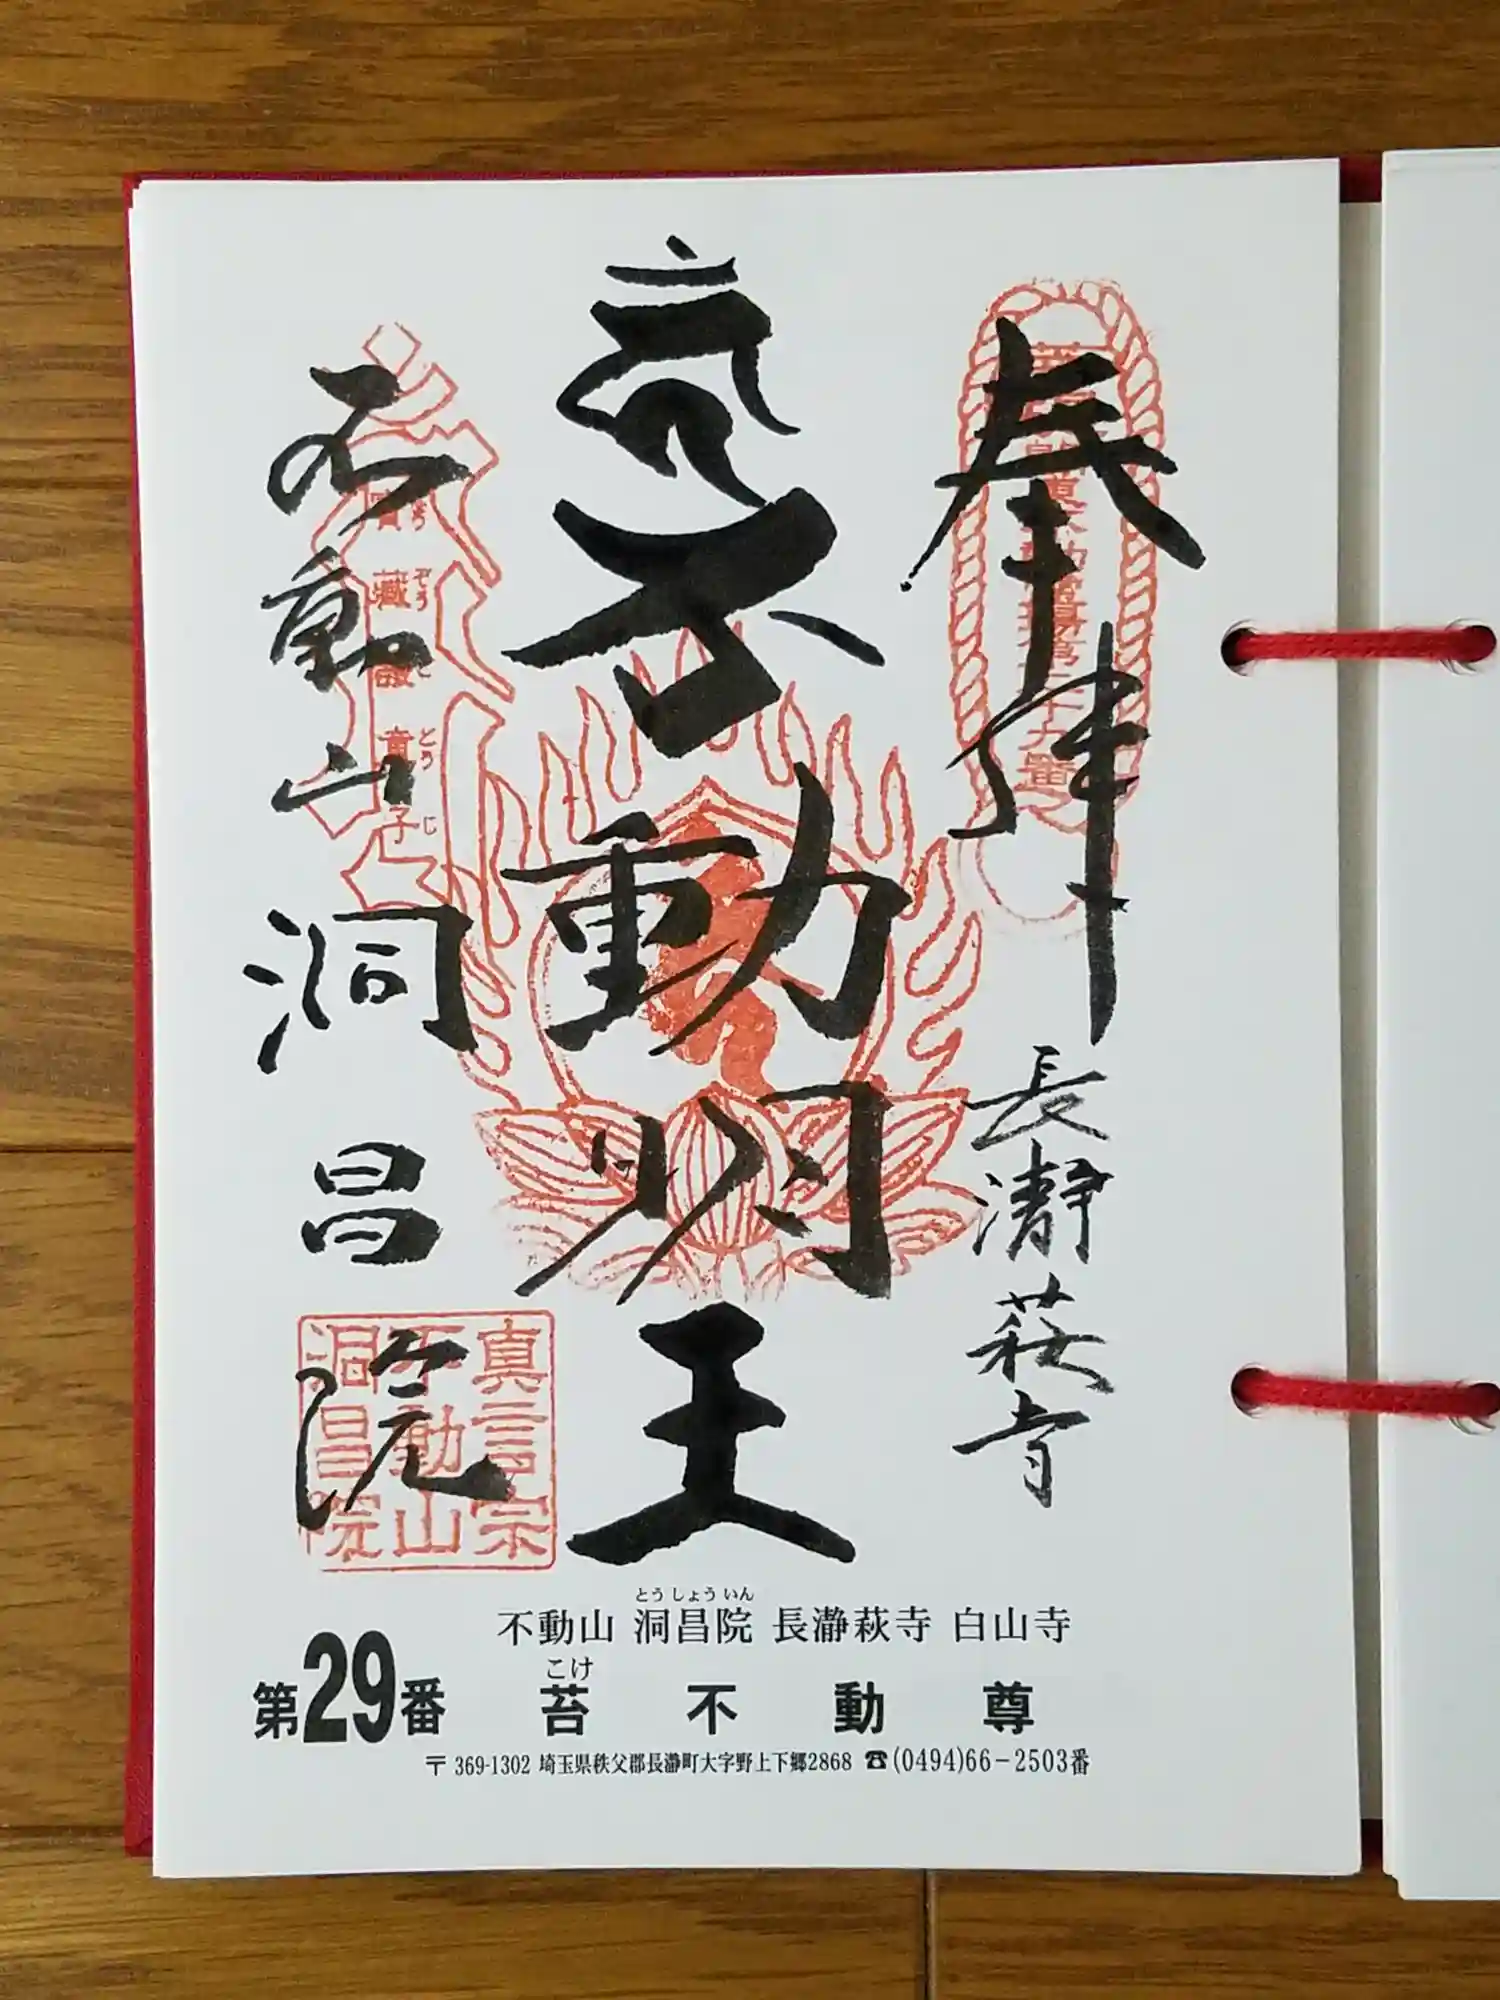 奉拝
長瀞萩寺
不動明王
不動山
洞昌院
寶藏護童子
ぞう
ご
どう
じ
真言宗
不動山
洞昌院
とうしょういん
不動山 洞昌院 長瀞萩寺 白山寺
こけ
第29番 苔不動尊
〒369-1302 埼玉県秩父郡長瀞町大字野上下郷2868 ☎(0494)66-2503番